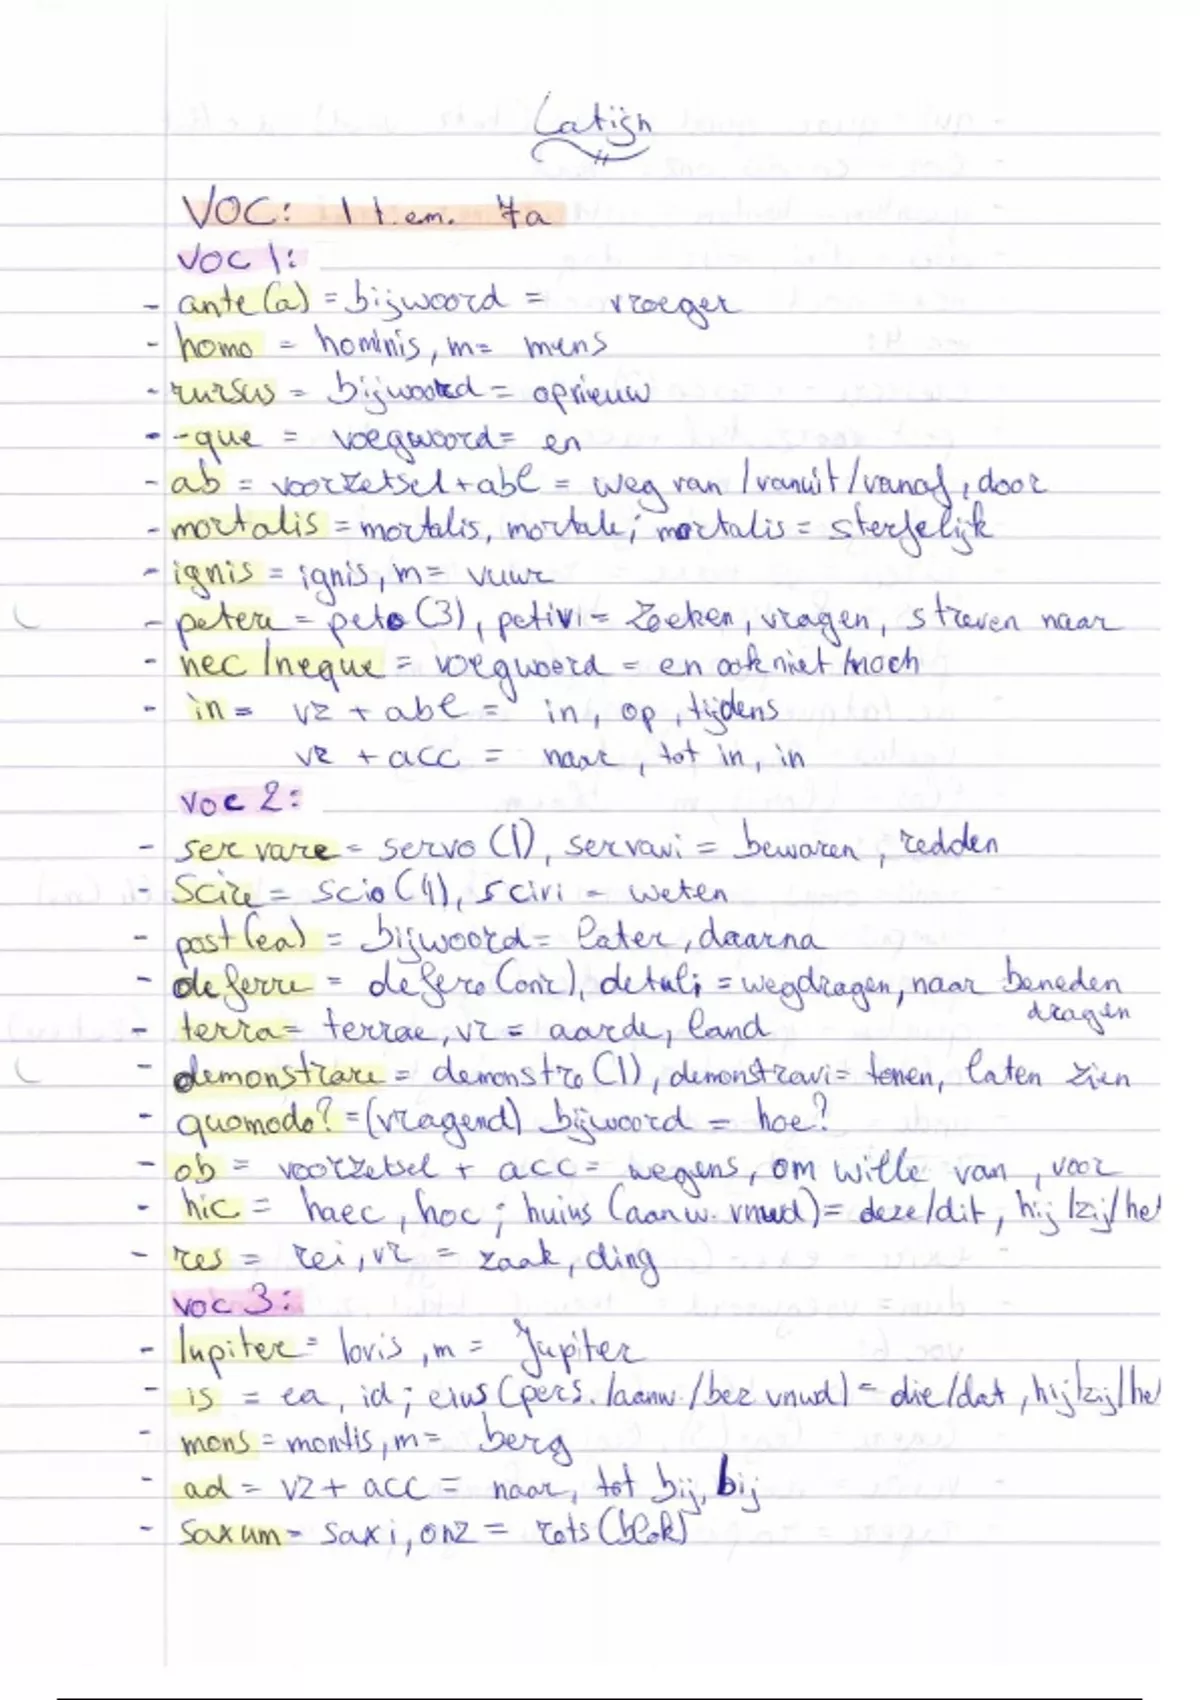 Latijn
VOC: 1 t.em. 7a
VOC 1:
- ante(a) = bijwoord = vroeger
- homo = hominis, m = mens
- rursus = bijwoord = opnieuw
- -que = voegwoord = en
- ab = voorzetsel + abl = weg van / vanuit / vanaf, door
- mortalis = mortalis, mortale; mortalis = sterfelijk
- ignis = ignis, m = vuur
- petere = peto (3), petivi = zoeken, vragen, streven naar
- nec / neque = voegwoord = en ook niet / noch
- in = vz + abl = in, op, tijdens
vz + acc = naar, tot in, in
VOC 2:
- servare = servo (1), servavi = bewaren, redden
- Scire = scio (4), scivi = weten
- post(ea) = bijwoord = later, daarna
- deferre = defero (onr), detuli = wegdragen, naar beneden
dragen
- terra = terrae, vr = aarde, land
- demonstrare = demonstro (1), demonstravi = tonen, laten zien
- quomodo? = (vragend) bijwoord = hoe?
- ob = voorzetsel + acc = wegens, om wille van, voor
- hic = haec, hoc; huius (aanw. vnwd) = deze/dit, hij/zij/he
- res = rei, vr = zaak, ding
VOC 3:
- Iupiter = Iovis, m = Jupiter
- is = ea, id; eius (pers. /aanw. /bez vnwd) = die/dat, hij/zij/he
- mons = montis, m = berg
- ad = vz + acc = naar, tot bij, bij
- Saxum = saxi, onz = rots (blok)